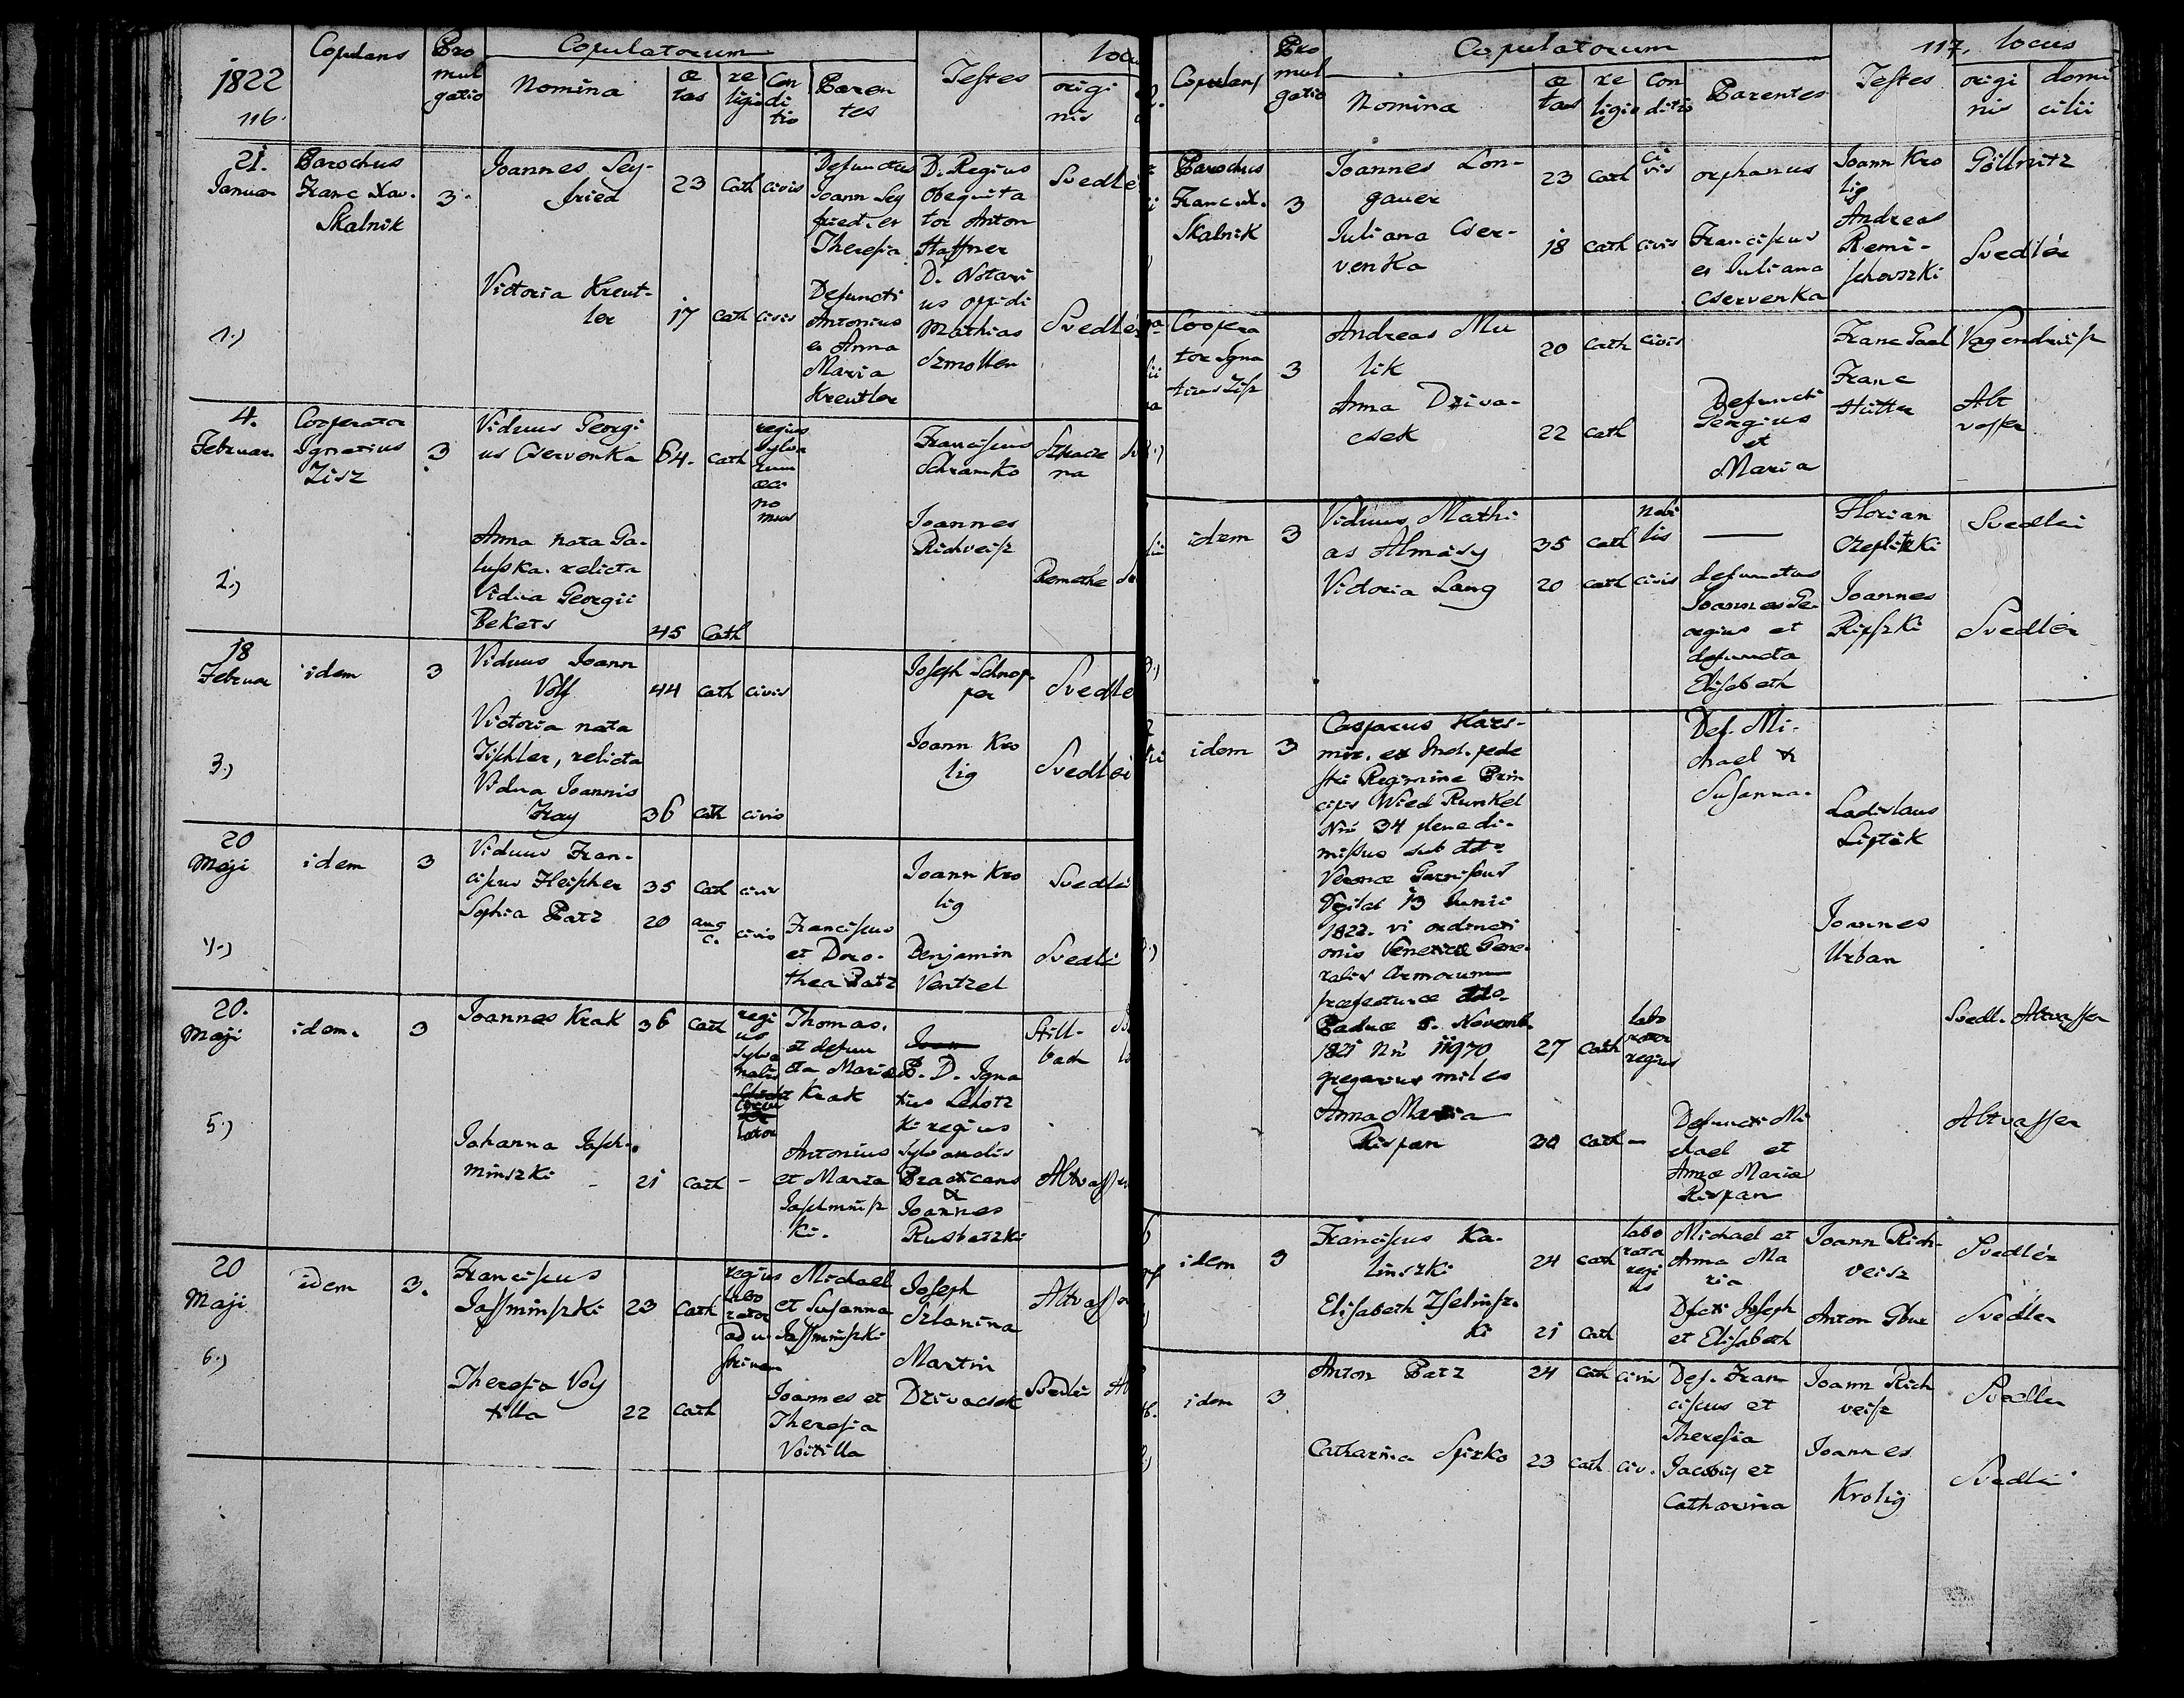 1822
116.
Copulans
Pro
mul
gatio
Copulatorum
Nomina
æ
tas
re
ligio
Con
di
tio
Paren
tes
Testes
locu
origi
nis
21.
Januar
1.)
Parochus
Franc Xav.
Skalnik
3.
Joannes Sey-
fried
23
Cath
civis
Defunctus
Joann Sey
fried. et
Theresia
D. Regius
Obequita
tor Anton
Haffner
Svedlé
Victoria Kreut-
ler
17
Cath
civis
Defuncti
Antonius
et Anna
Maria
Kreutler
D. Notari
us oppidi
Mathias
Szmollen
Svedlé
4.
Februar.
2.)
Cooperator
Ignatius
Zisz
3
Viduus Georgi
us Cservenka
64.
Cath
regius
sylva
rum
œco
no
mus
Franciscus
Schramko
Anna nata Ga-
luska. relicta
Vidua Georgii
Bekers
45
Cath
Joannes
Richveisz
Remethe
18
Februar
3.)
idem
3
Viduus Joann
Volf
44
cath
civis
Joseph Schnop-
per
Svedle
Victoria nata
Tischler, relicta
Vidua Joannis
Fray
36
cath
civis
Joann Kro
lig
Svedlei
20
Maji
4.)
idem
3
Viduus Fran-
ciscus Fleischer
35
Cath
civis
Joann Kro
lig
Svedlé
Sophia Patz
20
aug
c.
civis
Franciscus
et Doro-
thea Patz
Benjamin
Ventzel
Svedlé
20.
Maji
5.)
idem.
3
Joannes Krak
36
Cath
regi
us
sylva
nalis
lator
Thomas.
et defun
cta Maria
Krak
P. D. Igna
tius Lehotz
ki regius
sylvanalis
Practicans
&
Joannes
Rusbatzki
Still-
bach
Johanna Jasch-
minszki
21
cath
-
Antonius
et Maria
Jaschminsz
ki.
Altvasser
20
Maji
6.)
idem
3.
Franciscus
Jassminszki
23
Cath
regius
labo
rator
Michael
et Susanna
Jassminszki
Joseph
Szlanina
Altvasser
Theresia Voy
tilla
22
cath
Joannes et
Theresia
Voitilla
Martin
Drivacsek
Svedlér
117.
Copulans
Pro
mul
gatio
Copulatorum
Nomina
æ
tas
re
ligio
con
ditio
Parentes
Testes
locus
origi
nis
domi
cilii
Parochus
Franc. X.
Skalnik
3
Joannes Lon-
gauer
23
cath
ci
vis
orphanus
Joann Kro
lig
Göllnitz
Juliana Cser-
venka
18
cath
civis
Franciscus
et Juliana
Cservenka
Andreas
Remi-
schovszki
Svedlér
Coopera
tor Igna
tius Zisz
3
Andreas Mu
lik
20
Cath
civis
Franc Gael
Vagendrüsz
Anna Driva-
csek
22
cath
Defuncti
Georgius
et
Maria
Franc
Hütter
Alt
vasser
idem
3
Viduus Mathi
as Almásy
35
cath
nobi
lis
Florian
Czeplitzki
Svedlei
Victoria Lang
20
cath
civis
defunctus
Joannes Ge-
orgius et
defuncta
Elisabeth
Joannes
Ripszki
Svedlér
idem
3
Casparus Kars-
mir. ex Incl. pede
stri Regimine Prin
cipis Wied Runkel
Nro 34 plene di-
missus sub ddo
Veronæ
13 Junii
1822. vi ordinati
onis Venetiæ Gene-
ralis Armorum
præfecturæ ddo
Paduæ 5. Novemb.
1821 Nro 11970
gregarius miles
27
Cath
labo
rator
regius
Def. Mi-
chael &
Susanna.
Ladislaus
Liptak
Svedl. Altvasser
Anna Maria
Rispan
30
cath
-
Defuncti Mi
chael et
Anna Maria
Rispan
Joannes
Urban
Altvasser
idem
3
Franciscus Ka-
linszki
24
cath
labo
rator
regi
us
Michael et
Anna Ma
ria
Joann Rich-
veisz
Svedlér
Elisabeth Zselinsz-
ki
21
Cath
Dfcti Joseph
et Elisabeth
Anton Gbur
Svedler
idem
3
Anton Patz
24
Cath
civis
Def. Fran
ciscus et
Theresia
Joann Rich
veisz
Svedler
Catharina Spirko
23
Cath
civ.
Jacobus et
Catharina
Joannes
Krolig
Svedlér